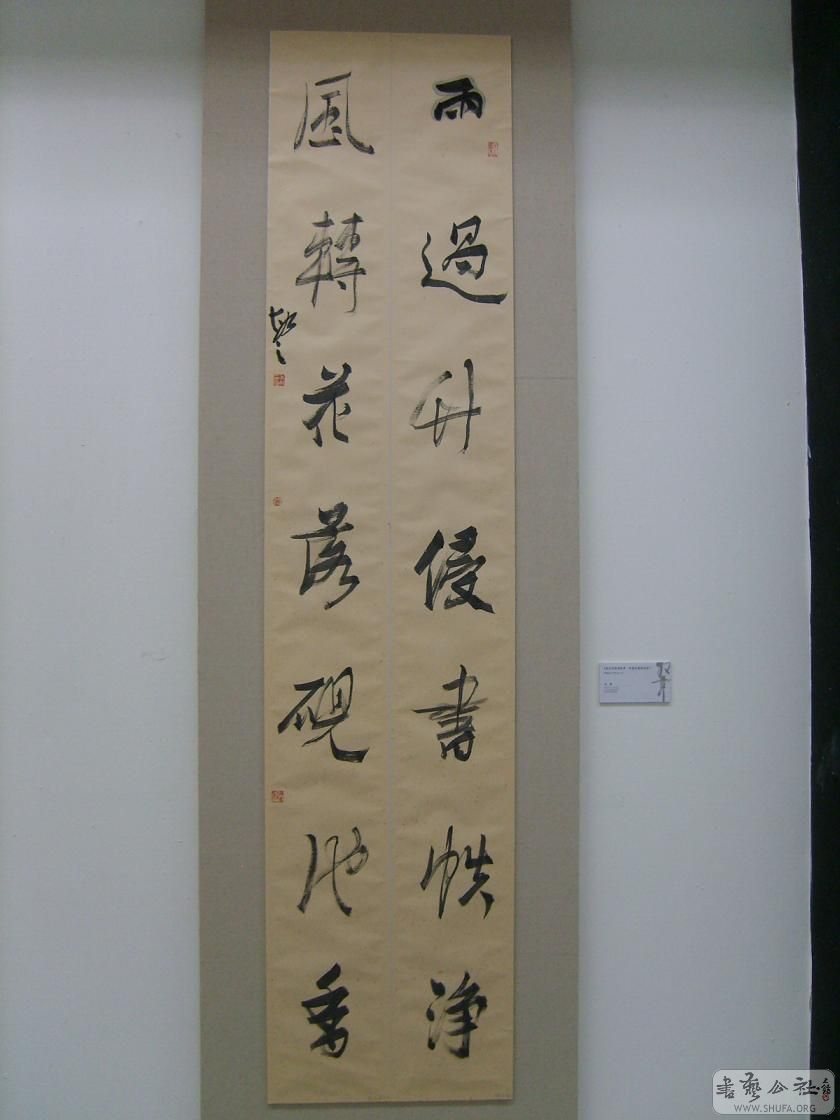 雨過竹侵書帙淨
風轉花落硯池香
書藝公社
WWW.SHUFA.ORG